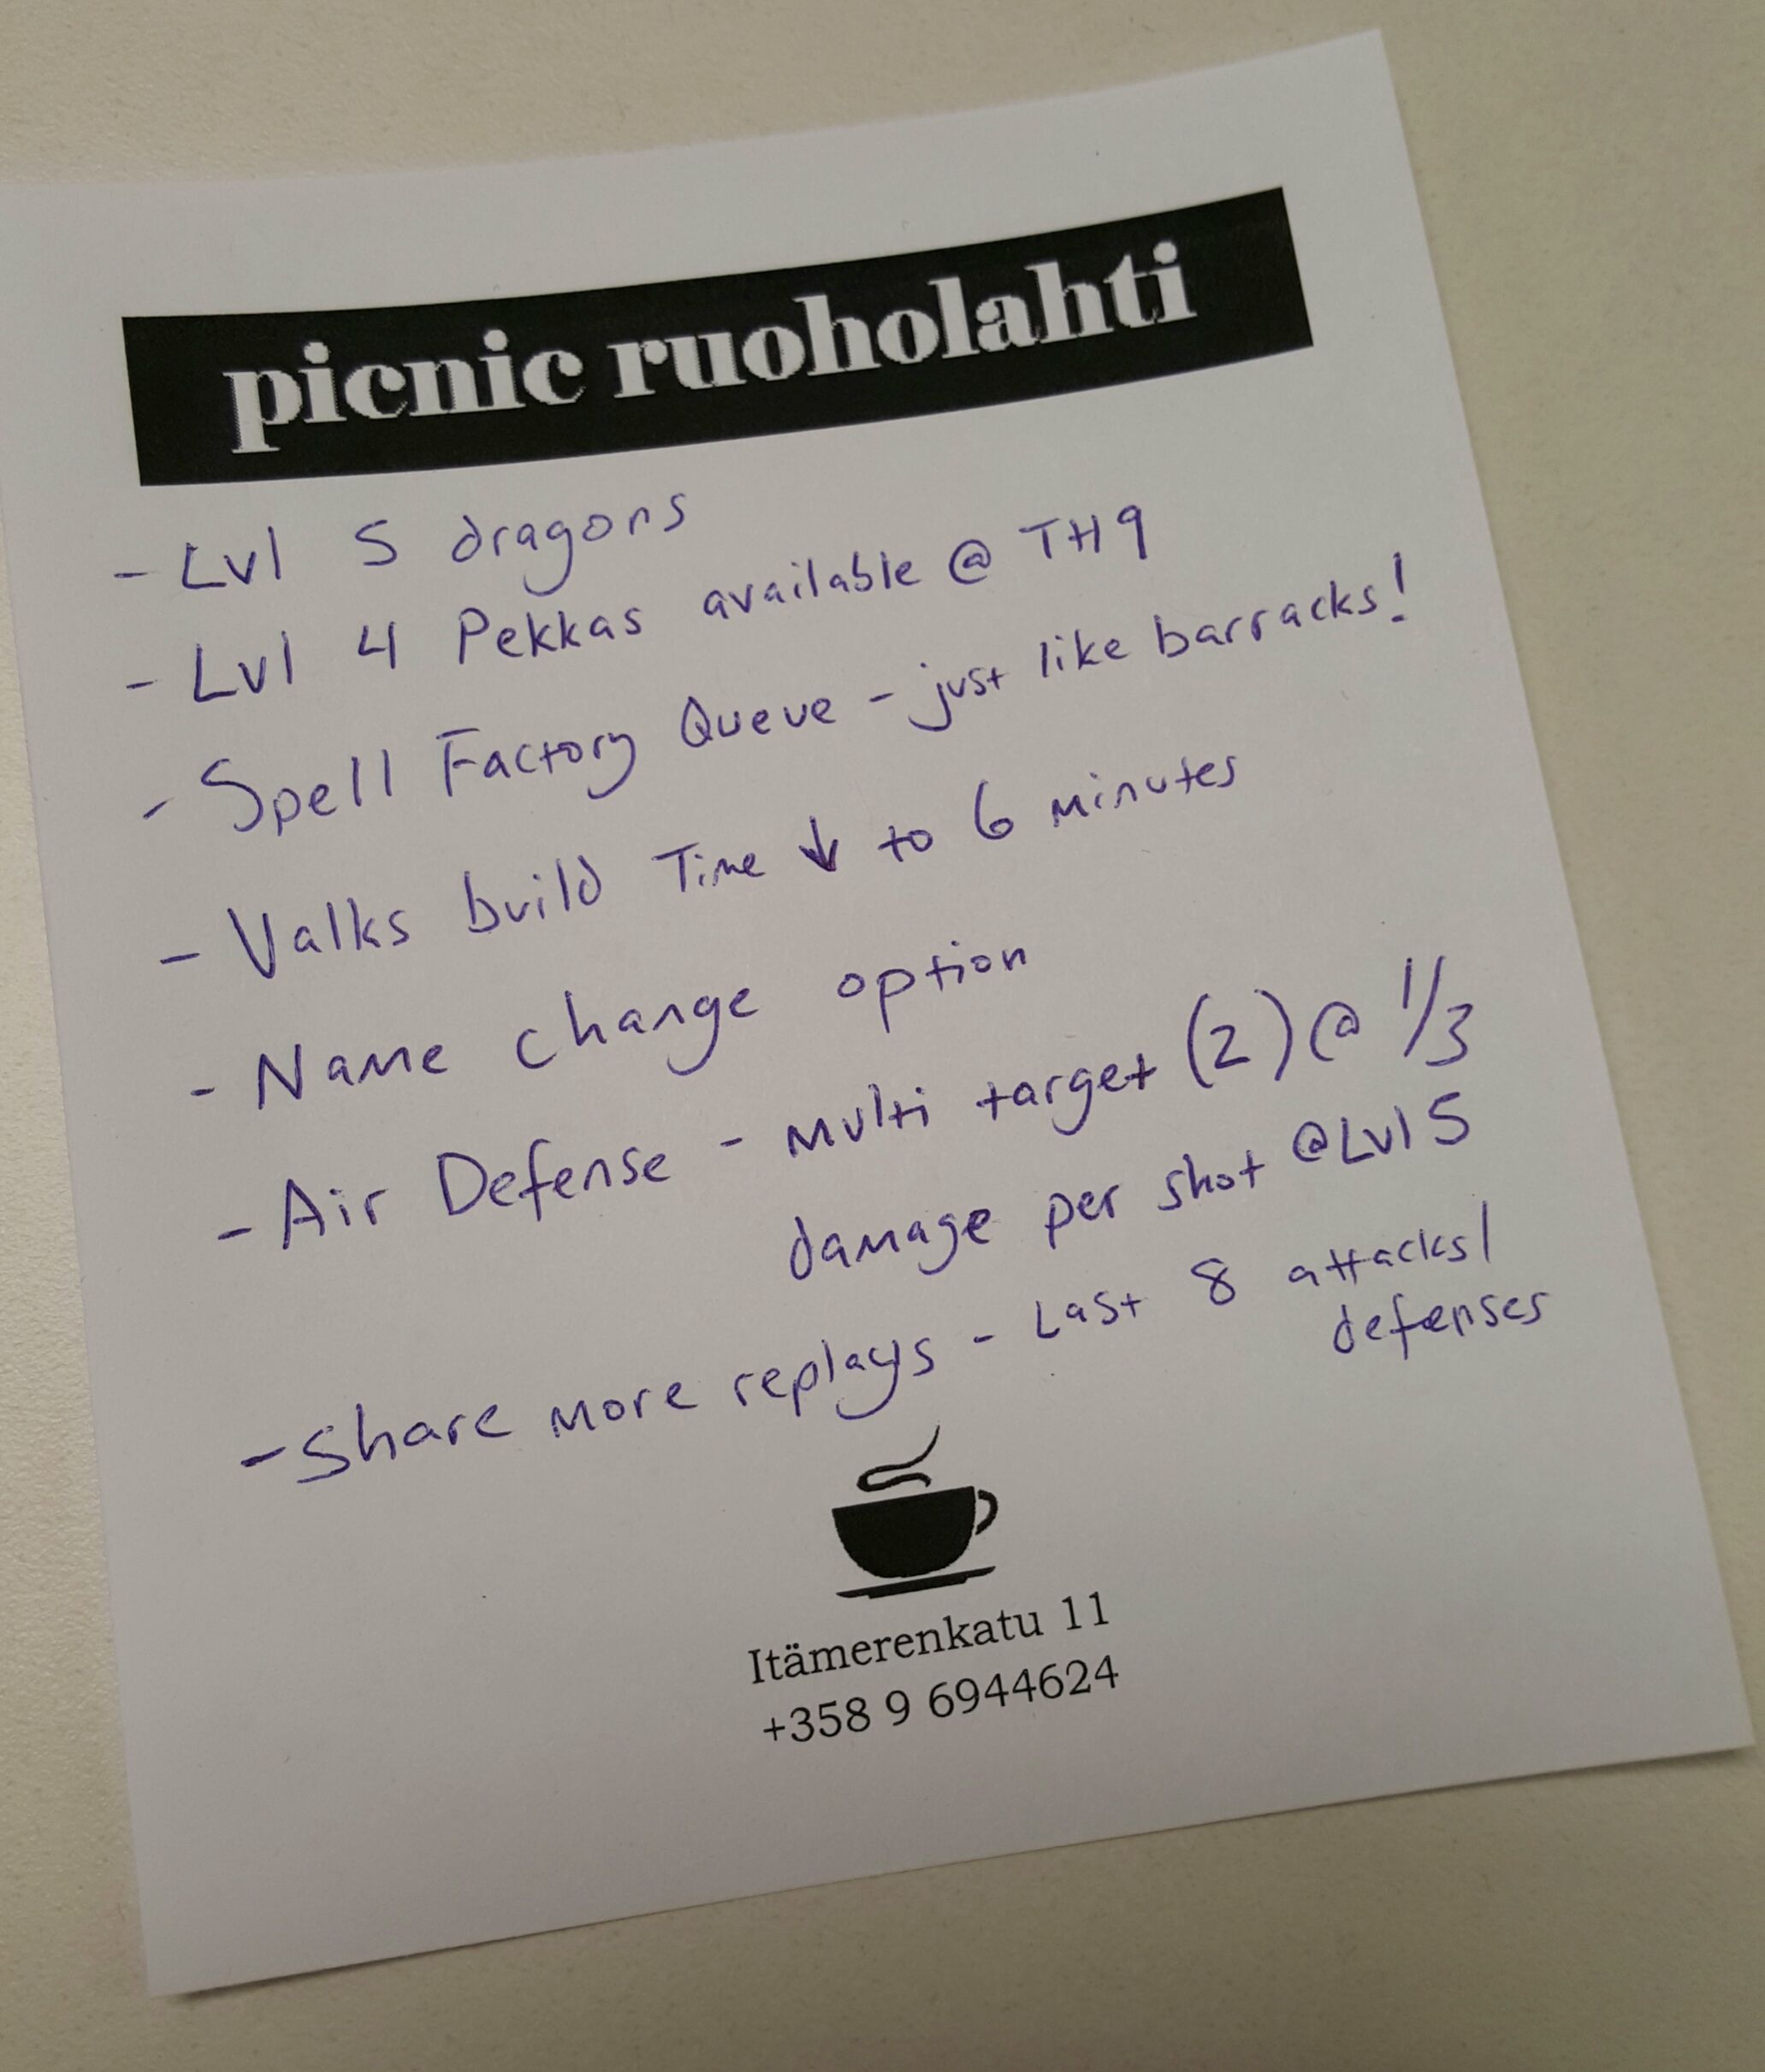 picnic ruoholahti
- Lvl 5 dragons
- Lvl 4 Pekkas available @ TH9
- Spell Factory Queue - just like barracks!
- Valks build Time ↓ to 6 minutes
- Name change option
- Air Defense - multi target (2) @ 1/3
damage per shot @ Lvl 5
- Share more replays - Last 8 attacks/
defenses
Itämerenkatu 11
+358 9 6944624